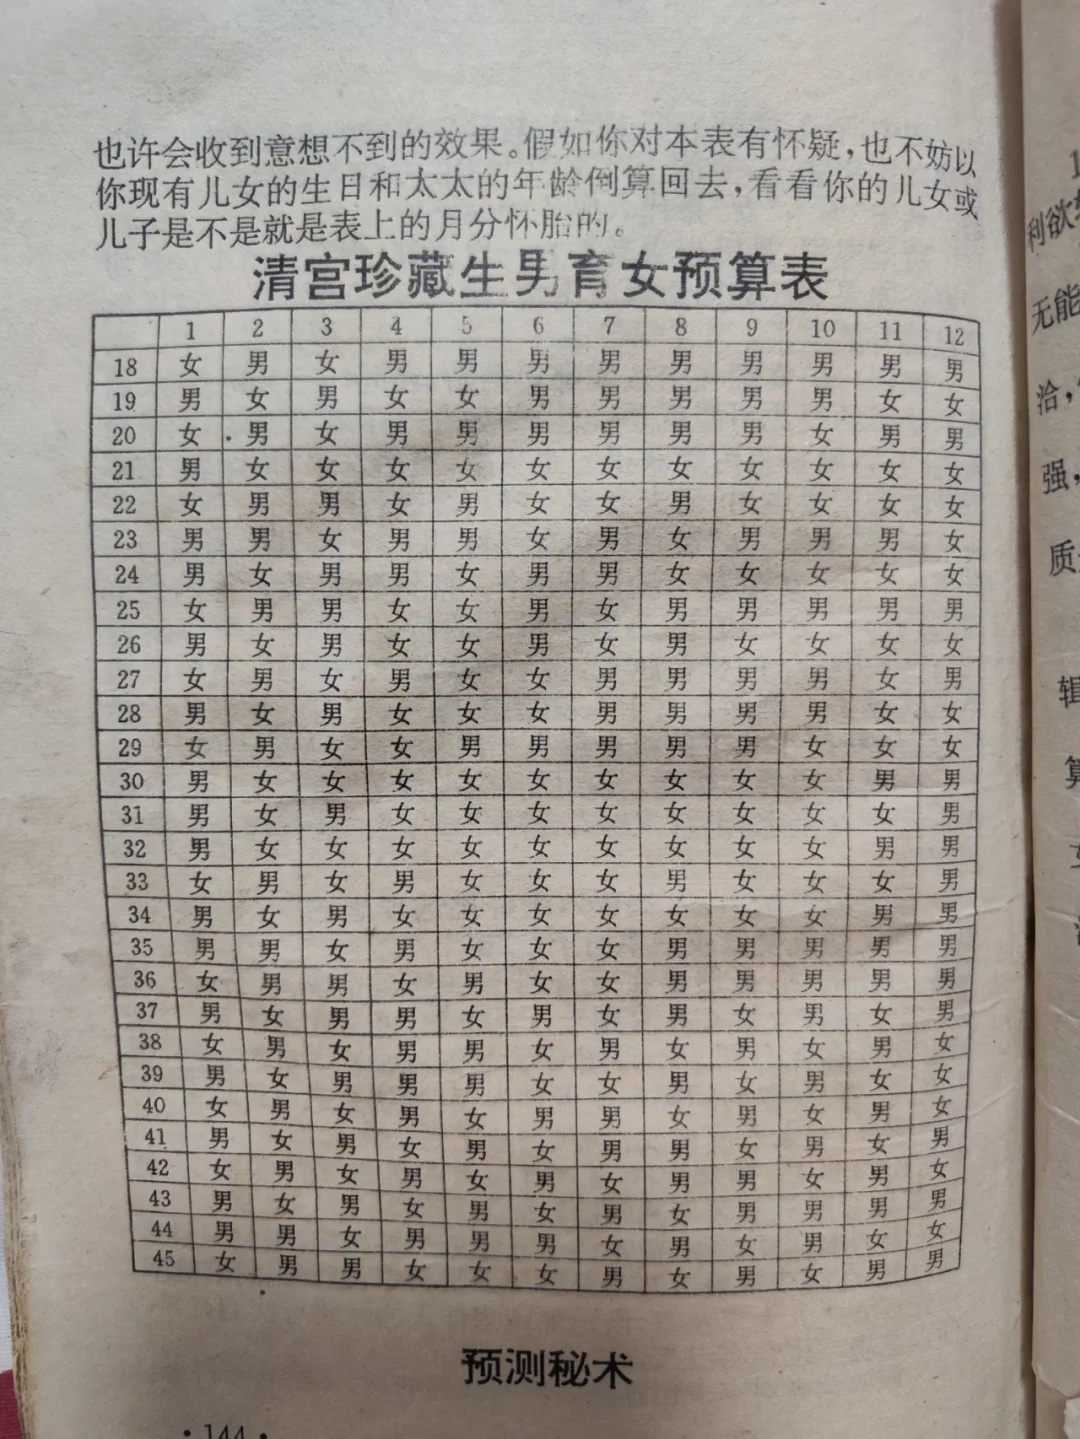 也许会收到意想不到的效果。假如你对本表有怀疑，也不妨以
你现有儿女的生日和太太的年龄倒算回去，看看你的儿女或
儿子是不是就是表上的月分怀胎的。
清宫珍藏生男育女预算表
1 2 3 4 5 6 7 8 9 10 11 12
18 女 男 女 男 男 男 男 男 男 男 男 男
19 男 女 男 女 女 男 男 男 男 男 女 女
20 女 男 女 男 男 男 男 男 男 女 男 男
21 男 女 女 女 女 女 女 女 女 女 女 女
22 女 男 男 女 男 女 女 男 女 女 女 女
23 男 男 女 男 男 女 男 女 男 男 男 女
24 男 女 男 男 女 男 男 女 女 女 女 女
25 女 男 男 女 女 男 女 男 男 男 男 男
26 男 女 男 女 女 男 女 男 女 女 女 女
27 女 男 女 男 女 女 男 男 男 男 女 男
28 男 女 男 女 女 女 男 男 男 男 女 女
29 女 男 女 女 男 男 男 男 男 女 女 女
30 男 女 女 女 女 女 女 女 女 女 男 男
31 男 女 男 女 女 女 女 女 女 女 女 男
32 男 女 女 女 女 女 女 女 女 女 男 男
33 女 男 女 男 女 女 女 男 女 女 女 男
34 男 女 男 女 女 女 女 女 女 女 男 男
35 男 男 女 男 女 女 女 男 男 男 男 男
36 女 男 男 女 男 女 女 男 男 男 男 男
37 男 女 男 男 女 男 女 男 女 男 女 男
38 女 男 女 男 男 女 男 女 男 女 男 女
39 男 女 男 男 男 女 女 男 女 男 女 女
40 女 男 女 男 女 男 男 女 男 女 男 女
41 男 女 男 女 男 女 男 男 女 男 女 男
42 女 男 女 男 女 男 女 男 男 女 男 女
43 男 女 男 女 男 女 男 女 男 男 男 男
44 男 男 女 男 男 男 女 男 女 男 女 女
45 女 男 男 女 女 女 男 女 男 女 男 男
预测秘术
·144·
利欲
无能
洽，
强，
质
辑
算